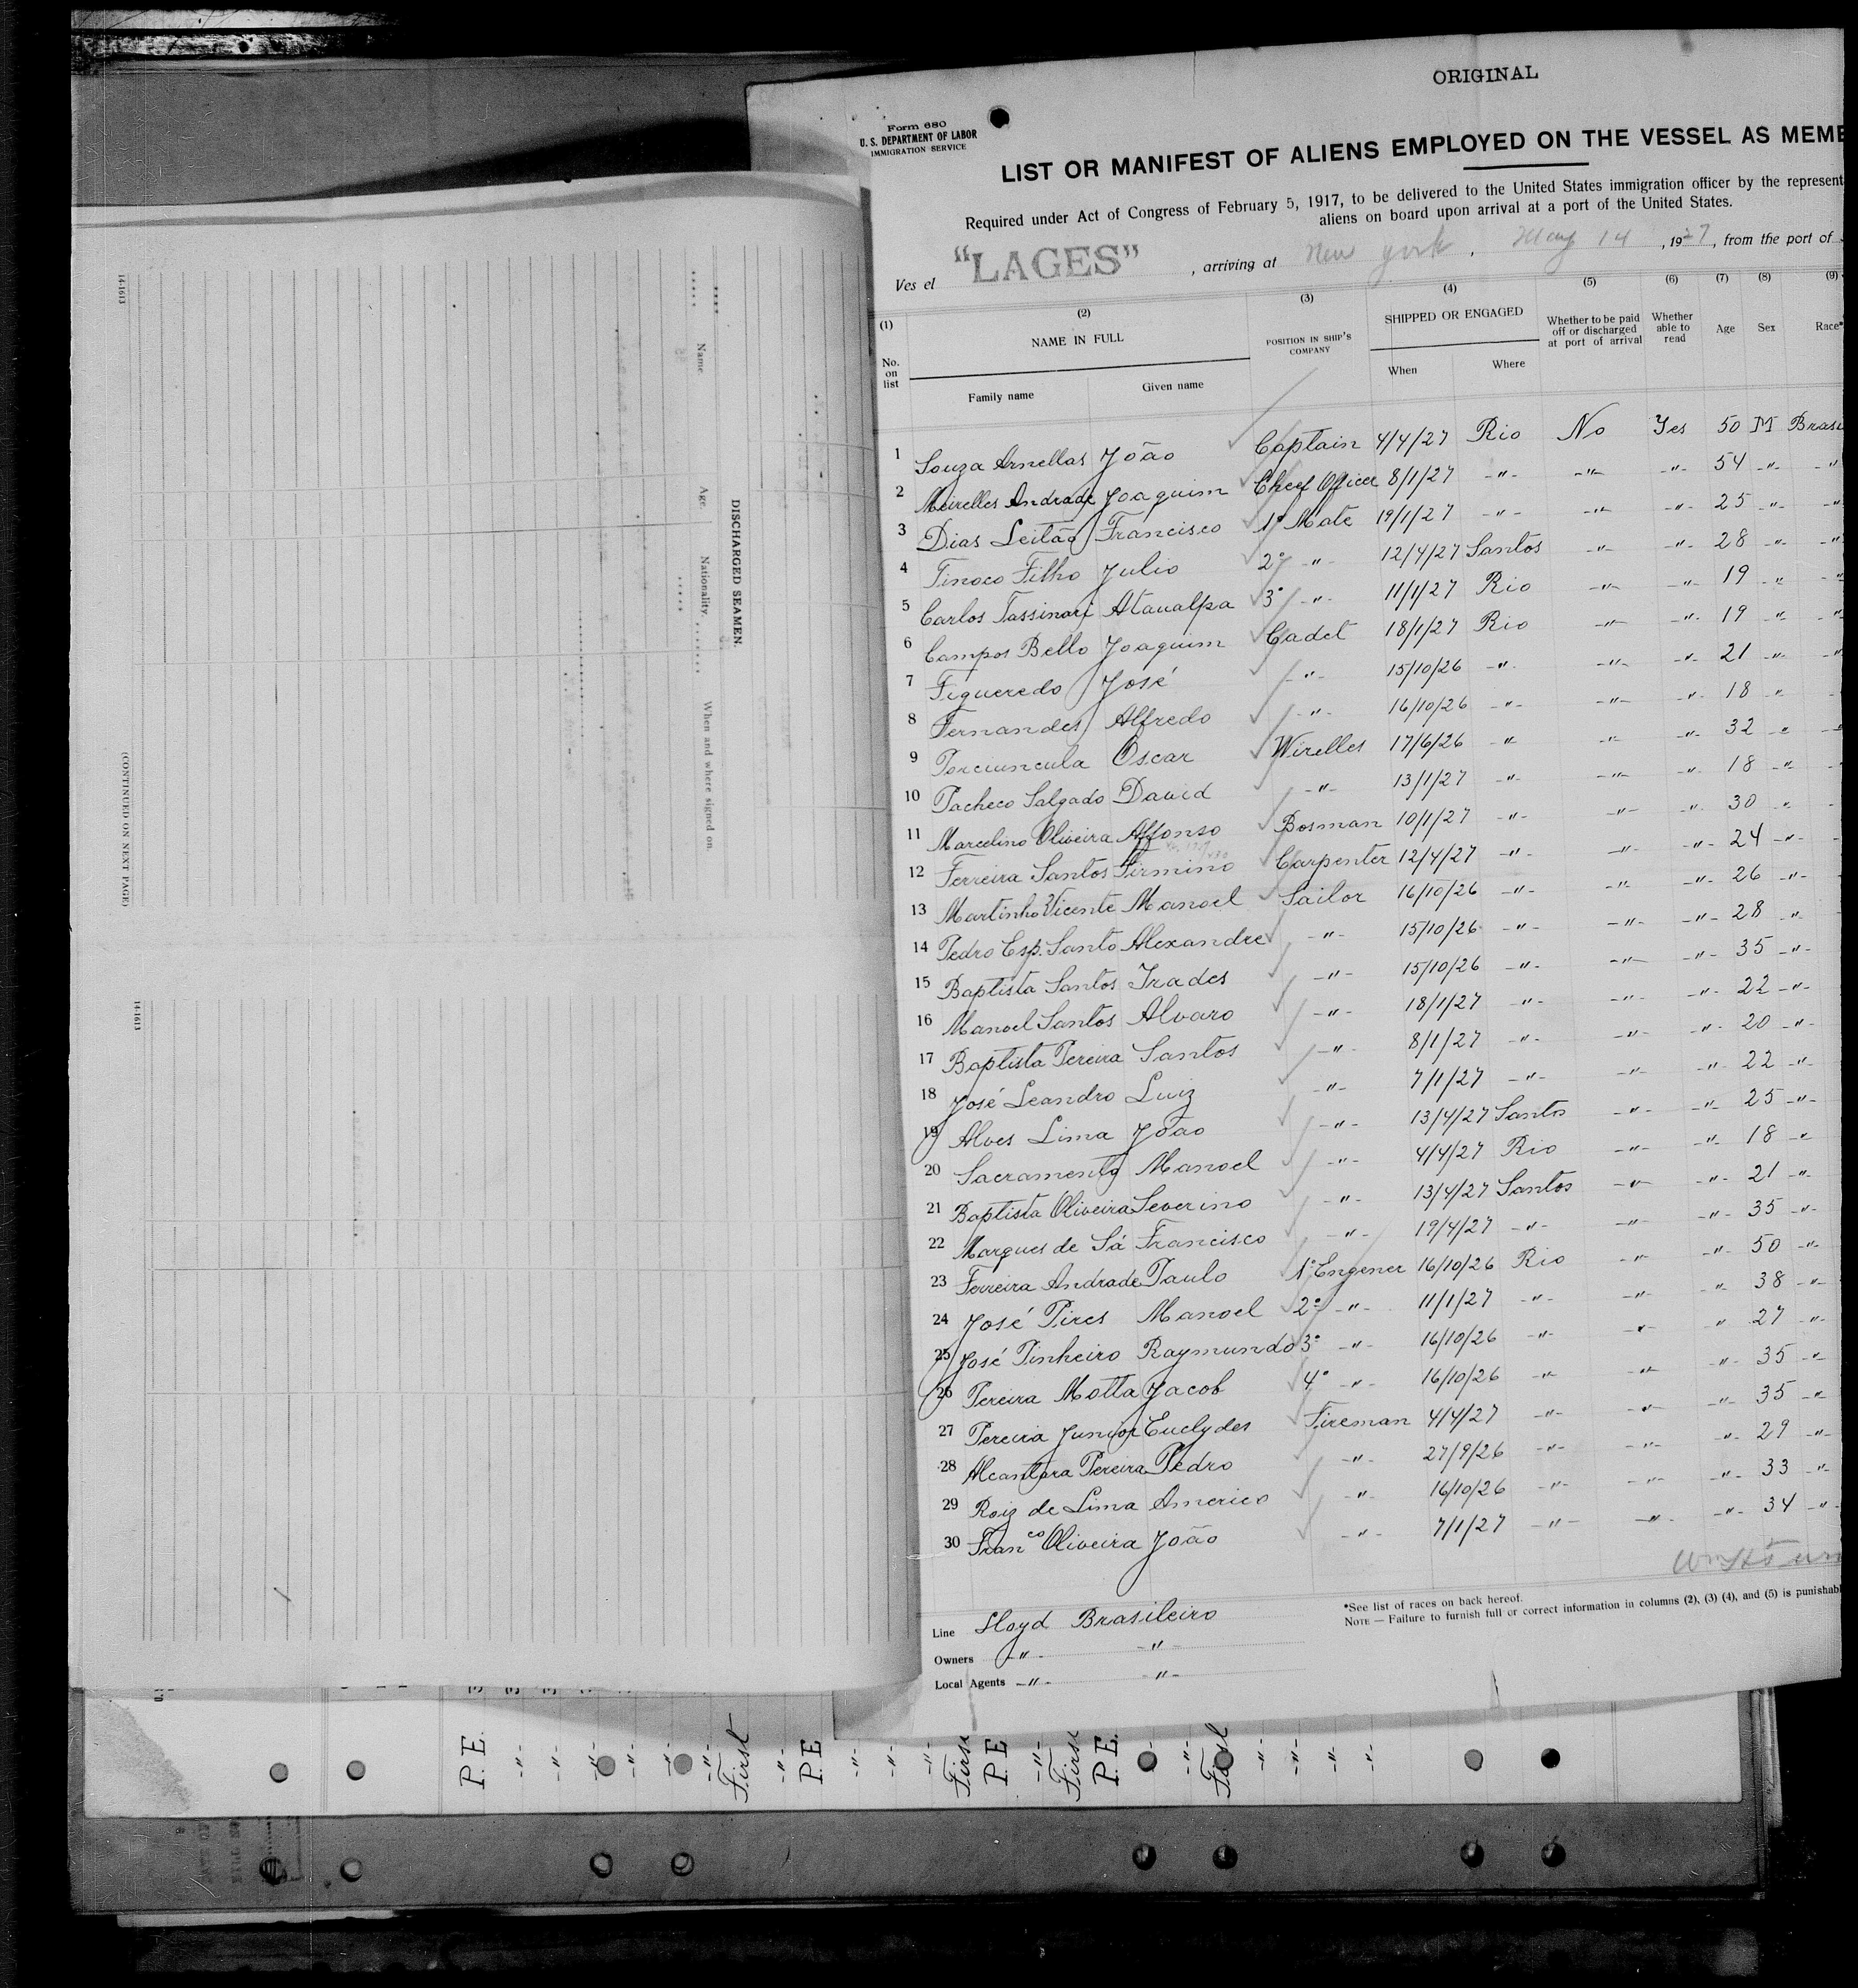 ORIGINAL
Form 680
U. S. DEPARTMENT OF LABOR
IMMIGRATION SERVICE
LIST OR MANIFEST OF ALIENS EMPLOYED ON THE VESSEL AS MEMB
Required under Act of Congress of February 5, 1917, to be delivered to the United States immigration officer by the represent
aliens on board upon arrival at a port of the United States.
Ves el "LAGES" , arriving at New York , May 14 , 1927, from the port of
(1) (2) (3) (4) (5) (6) (7) (8) (9)
No. on list NAME IN FULL Family name Given name POSITION IN SHIP'S COMPANY SHIPPED OR ENGAGED When Where Whether to be paid off or discharged at port of arrival Whether able to read Age Sex Race*
1 Souza Arnellas João Captain 4/4/27 Rio No Yes 50 M Brasi
2 Meirelles Andrade Joaquim Cheef Officer 8/1/27 -"- -"- -"- 54 -"- -"
3 Dias Leitão Francisco 1º Mate 19/1/27 -"- -"- -"- 25 -"- -"
4 Tinoco Filho Julio 2º -"- 12/4/27 Santos -"- -"- 28 -"- -"
5 Carlos Tassinari Ataualpa 3º -"- 11/1/27 Rio -"- -"- 19 -"- -"
6 Campos Bello Joaquim Cadet 18/1/27 Rio -"- -"- 19 -"- -"
7 Figueredo José -"- 15/10/26 -"- -"- -"- 21 -"- -"
8 Fernandes Alfredo -"- 16/10/26 -"- -"- -"- 18 -"-
9 Porciuncula Oscar Wirelles 17/6/26 -"- -"- -"- 32 -"-
10 Pacheco Salgado David -"- 13/1/27 -"- -"- -"- 18 -"-
11 Marcelino Oliveira Affonso Bosman 10/1/27 -"- -"- -"- 30 -"-
12 Ferreira Santos Firmino Carpenter 12/4/27 -"- -"- -"- 24 -"-
13 Martinho Vicente Manoel Sailor 16/10/26 -"- -"- -"- 26 -"-
14 Pedro Esp. Santo Alexandre -"- 15/10/26 -"- -"- -"- 28 -"-
15 Baptista Santos Irades -"- 15/10/26 -"- -"- -"- 35 -"-
16 Manoel Santos Alvaro -"- 18/1/27 -"- -"- -"- 22 -"-
17 Baptista Pereira Santos -"- 8/1/27 -"- -"- -"- 20 -"-
18 José Leandro Luiz -"- 7/1/27 -"- -"- -"- 22 -"-
19 Alves Lima João -"- 13/4/27 Santos -"- -"- 25 -"-
20 Sacramento Manoel -"- 4/4/27 Rio -"- -"- 18 -"-
21 Baptista Oliveira Severino -"- 13/4/27 Santos -"- -"- 21 -"-
22 Marques de Sá Francisco -"- 19/4/27 -"- -"- -"- 35 -"-
23 Ferreira Andrade Paulo 1º Engener 16/10/26 Rio -"- -"- 50 -"-
24 José Pires Manoel 2º -"- 11/1/27 -"- -"- -"- 38 -"-
25 José Pinheiro Raymundo 3º -"- 16/10/26 -"- -"- -"- 27 -"-
26 Pereira Motta Jacob 4º -"- 16/10/26 -"- -"- -"- 35 -"-
27 Pereira Junior Euclydes Fireman 4/4/27 -"- -"- -"- 35 -"-
28 Alcantara Pereira Pedro -"- 27/9/26 -"- -"- -"- 29 -"-
29 Roiz de Lima Americo -"- 16/10/26 -"- -"- -"- 33 -"-
30 Franco Oliveira João -"- 7/1/27 -"- -"- -"- 34 -"-
*See list of races on back hereof.
NOTE — Failure to furnish full or correct information in columns (2), (3) (4), and (5) is punishabl
Line Lloyd Brasileiro
Owners -"- -"-
Local Agents -"- -"-
14-1613
DISCHARGED SEAMEN.
Name Age. Nationality. When and where signed on.
(CONTINUED ON NEXT PAGE)
14-1613
P.E. -"- -"- -"- -"- -"- -"- First -"- P.E -"- -"- -"- First P.E -"- First P.E. -"- -"- First -"- -"- -"- -"-